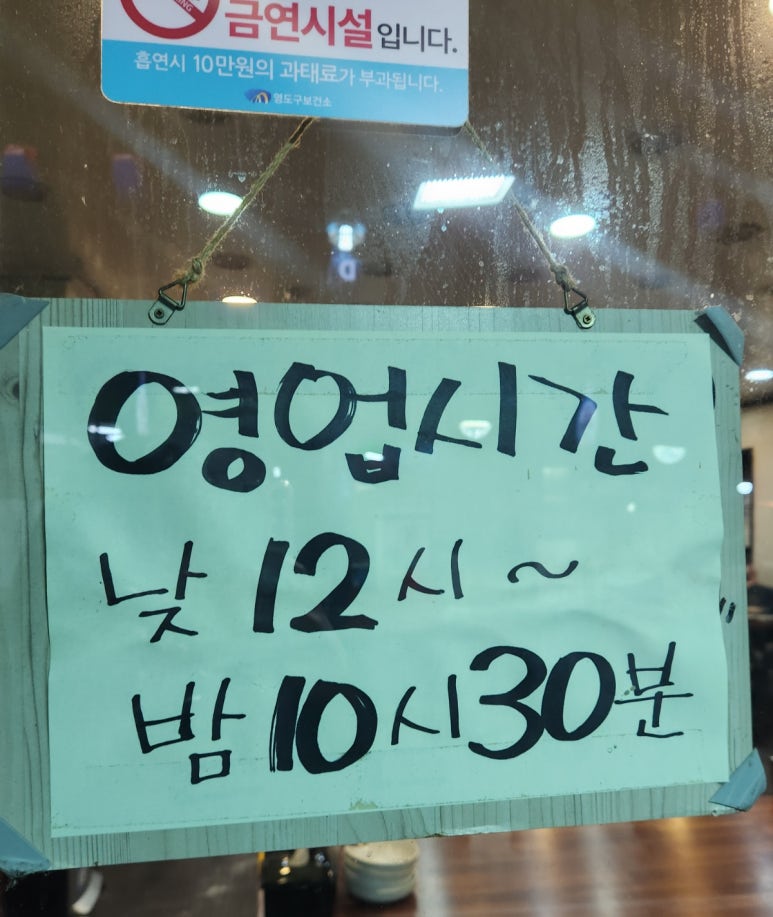 금연시설입니다.
흡연시 10만원의 과태료가 부과됩니다.
영도구보건소
영업시간
낮 12시 ~
밤 10시 30분